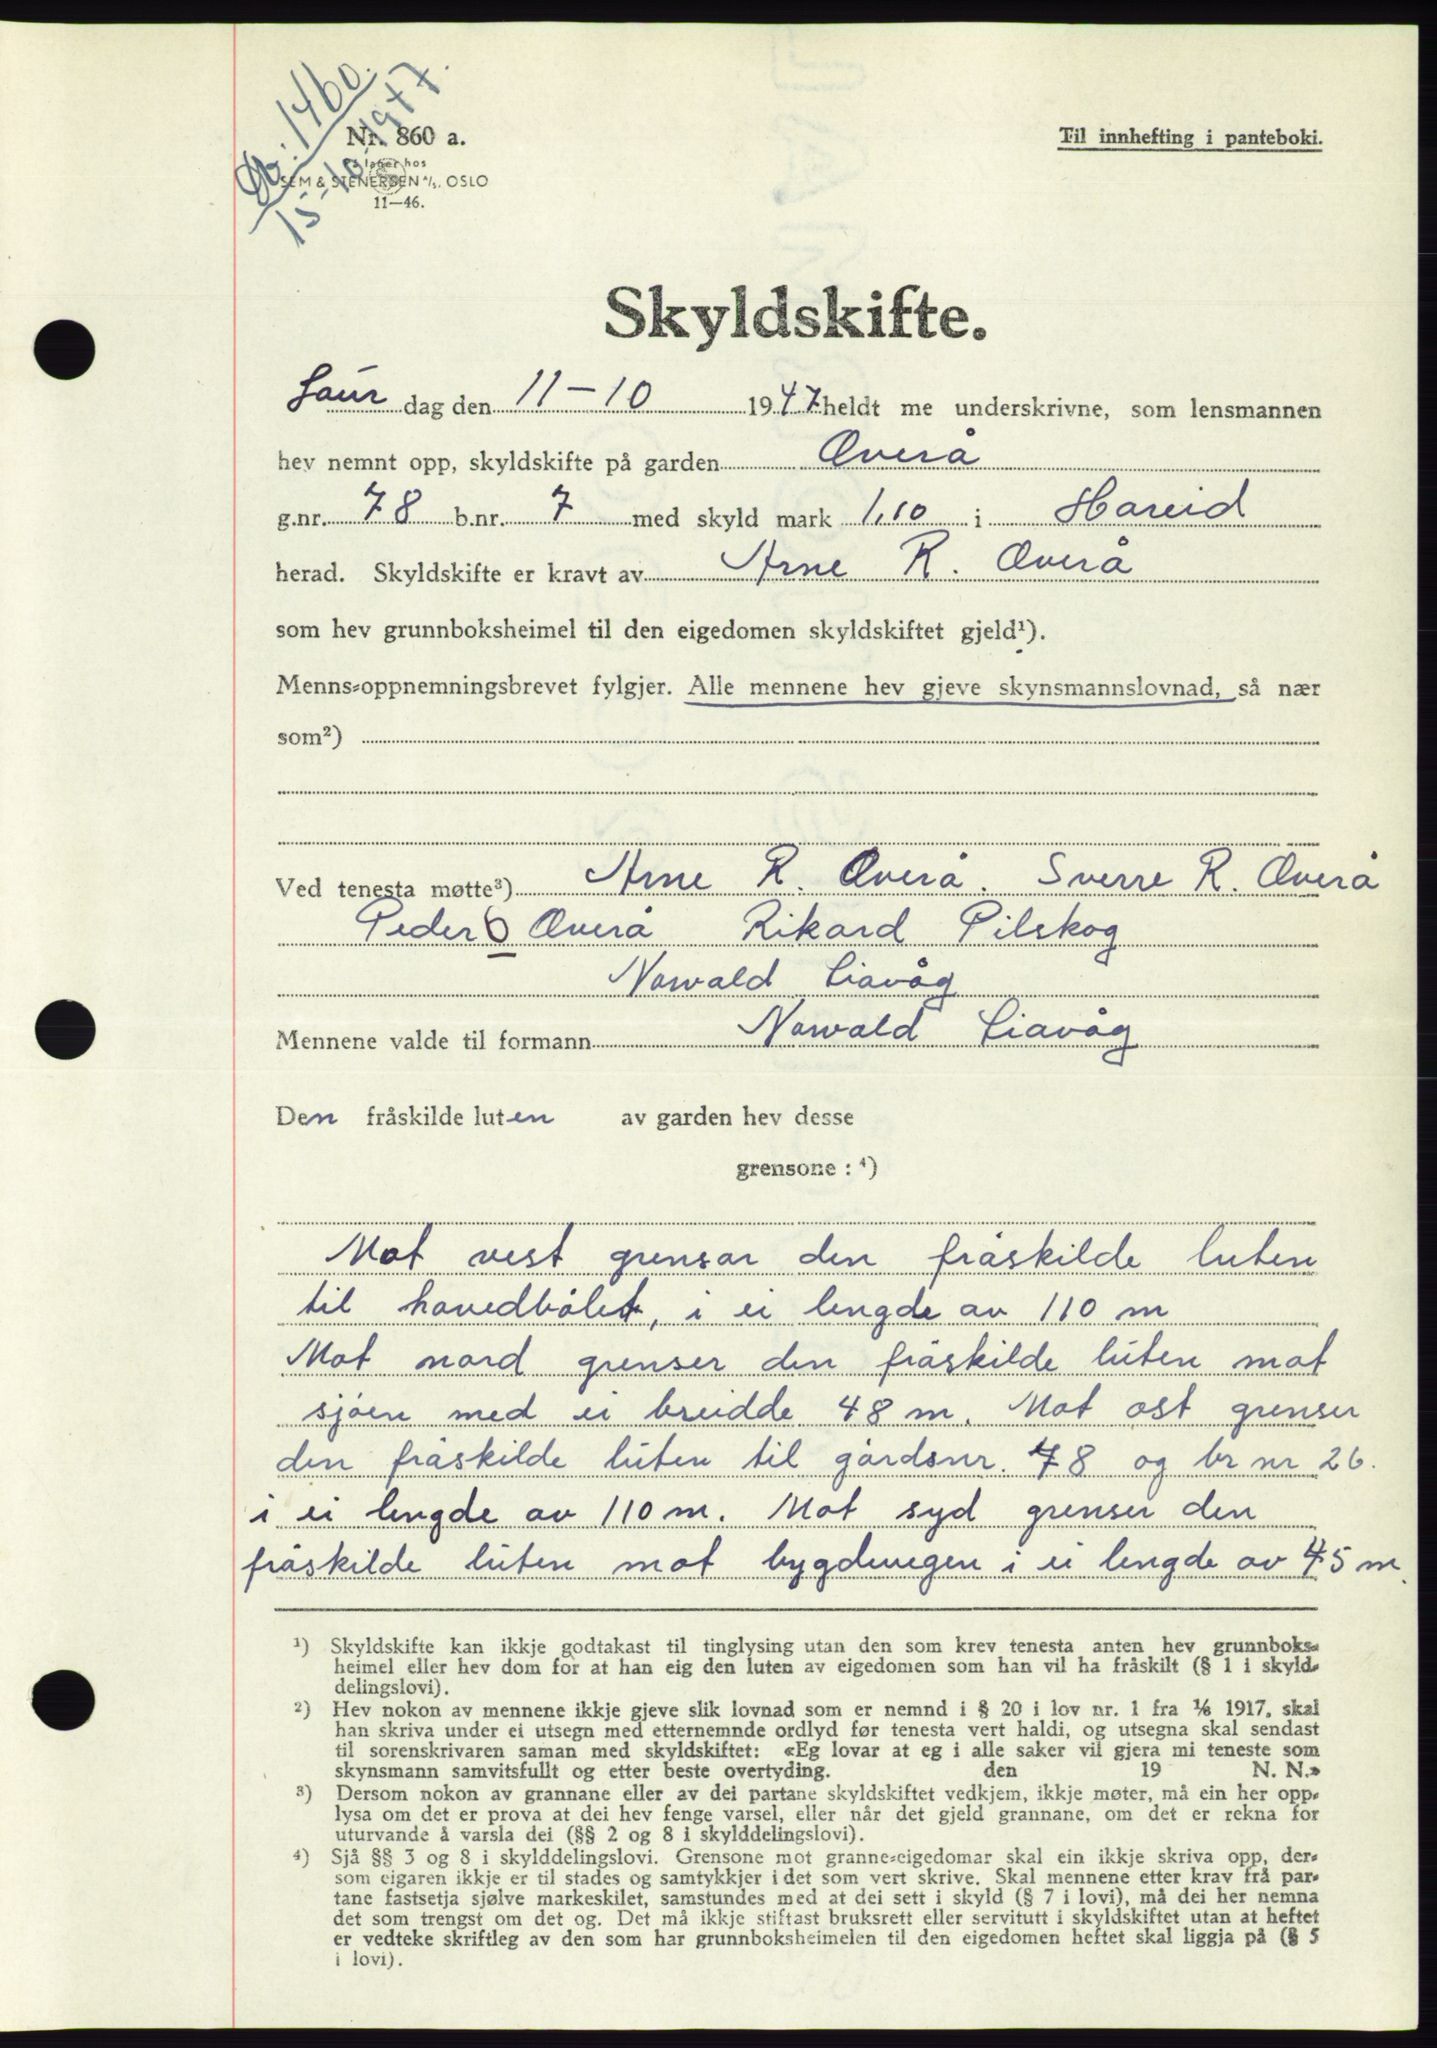 Db. 1460.
15-10-1947.
Nr. 860 a.
Til innhefting i panteboki.
På lager hos
SEM & STENERSEN A/S, OSLO
11—46.
Skyldskifte.
Laur dag den 11-10 1947 heldt me underskrivne, som lensmannen
hev nemnt opp, skyldskifte på garden Overå
g.nr. 78 b.nr. 7 med skyld mark 1,10 i Hareid
herad. Skyldskifte er kravt av Arne R. Overå
som hev grunnboksheimel til den eigedomen skyldskiftet gjeld¹).
Menns-oppnemningsbrevet fylgjer. Alle mennene hev gjeve skynsmannslovnad, så nær
som²)
Ved tenesta møtte³) Arne R. Overå. Sverre R. Overå
Peder O Overå Rikard Pilskog
Norvald Liavåg
Mennene valde til formann Norvald Liavåg
Den fråskilde luten av garden hev desse
grensone : ⁴)
Mot vest grensar den fråskilde luten
til hovedbølet, i ei lengde av 110 m
Mot nord grenser den fråskilde luten mot
sjøen med ei breidde 48 m. Mot ost grenser
den fråskilde luten til gårdsnr. 78 og br nr 26.
i ei lengde av 110 m. Mot syd grenser den
fråskilde luten mot bygdevegen i ei lengde av 45 m.
¹) Skyldskifte kan ikkje godtakast til tinglysing utan den som krev tenesta anten hev grunnboks-
heimel eller hev dom for at han eig den luten av eigedomen som han vil ha fråskilt (§ 1 i skyld-
delingslovi).
²) Hev nokon av mennene ikkje gjeve slik lovnad som er nemnd i § 20 i lov nr. 1 fra 1/6 1917, skal
han skriva under ei utsegn med etternemnde ordlyd før tenesta vert haldi, og utsegna skal sendast
til sorenskrivaren saman med skyldskiftet: «Eg lovar at eg i alle saker vil gjera mi teneste som
skynsmann samvitsfullt og etter beste overtyding. den 19 N. N.»
³) Dersom nokon av grannane eller av dei partane skyldskiftet vedkjem, ikkje møter, må ein her opp-
lysa om det er prova at dei hev fenge varsel, eller når det gjeld grannane, om det er rekna for
uturvande å varsla dei (§§ 2 og 8 i skylddelingslovi).
⁴) Sjå §§ 3 og 8 i skylddelingslovi. Grensone mot granne-eigedomar skal ein ikkje skriva opp, der-
som eigaren ikkje er til stades og samtykkjer i det som vert skrive. Skal mennene etter krav frå par-
tane fastsetja sjølve markeskilet, samstundes med at dei sett i skyld (§ 7 i lovi), må dei her nemna
det som trengst om det og. Det må ikkje stiftast bruksrett eller servitutt i skyldskiftet utan at heftet
er vedteke skriftleg av den som har grunnboksheimelen til den eigedomen heftet skal liggja på (§ 5
i lovi).